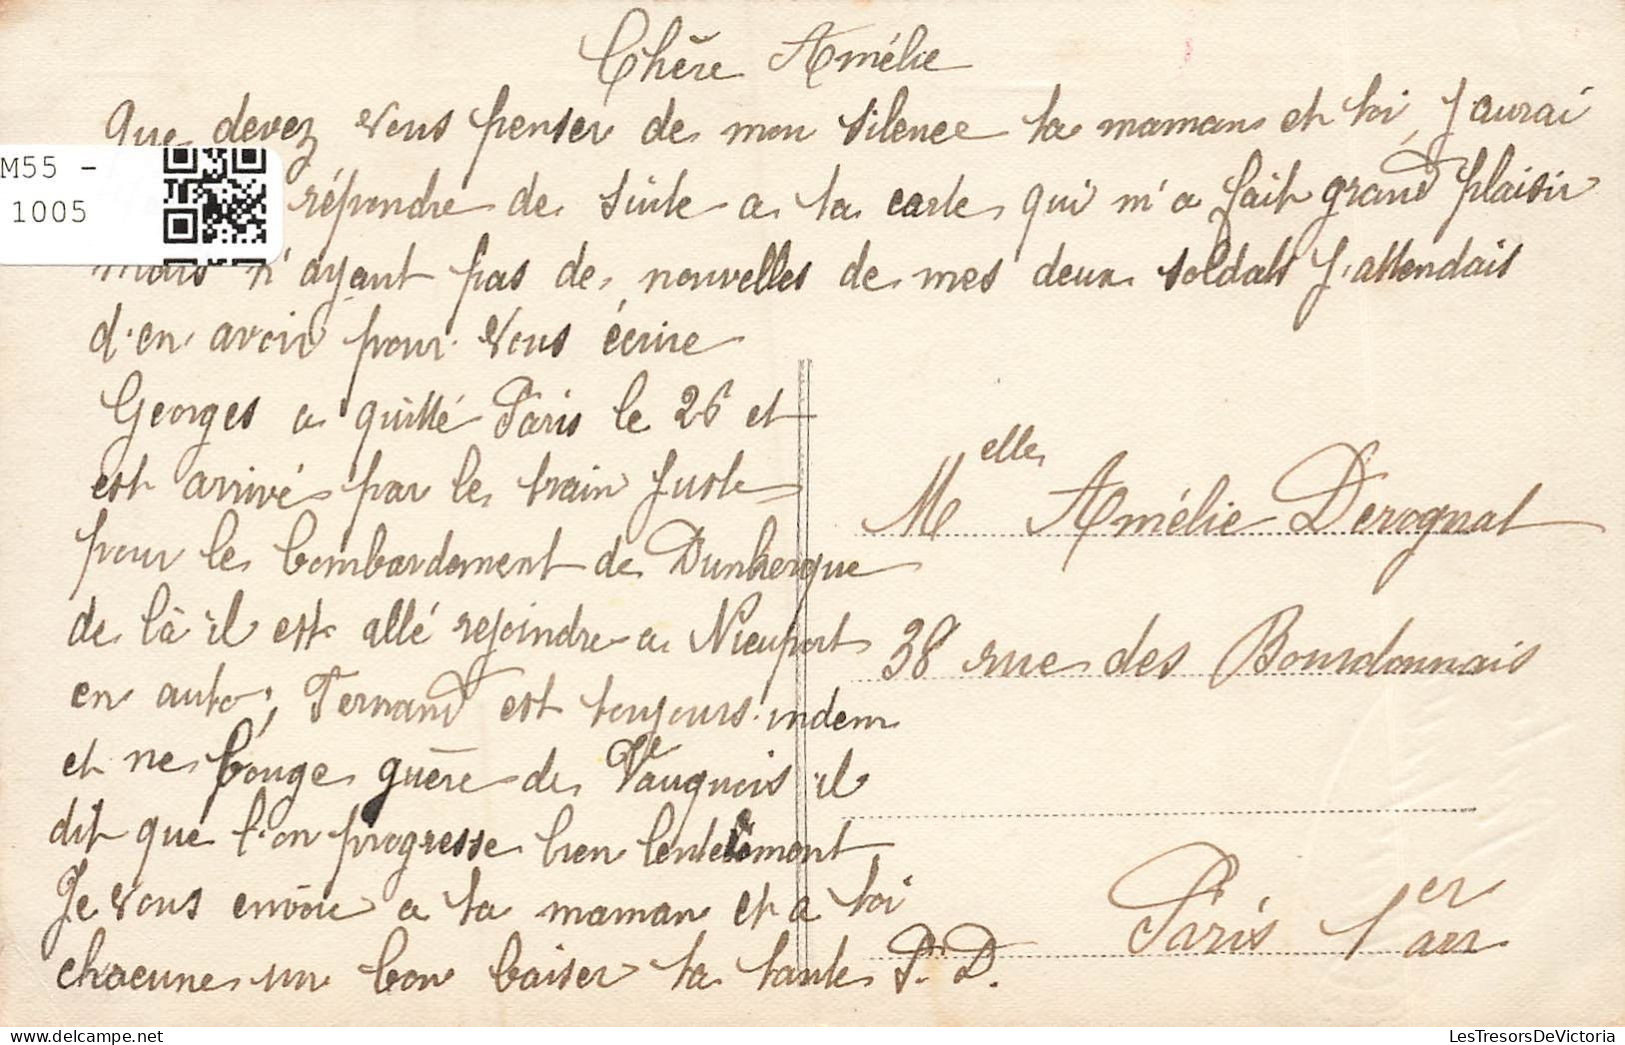 Chère Amélie
Que devez vous penser de mon silence ta maman et toi, J'aurai
répondre de suite a ta carte qui m'a fait grand plaisir
mais n'ayant pas de nouvelles de mes deux soldats J'attendais
d'en avoir pour vous écrire
Georges a quitté Paris le 26 et
est arrivé par le train Juste
pour le bombardement de Dunkerque
de là il est allé rejoindre a Nieuport
en auto; Fernand est toujours indem
et ne bouge guère de Vauquois il
dit que l'on progresse bien lentement
Je vous envoie a ta maman et a toi
chacune un bon baiser ta tante P. D.
Melle Amélie Derognat
38 rue des Bourdonnais
Paris 1er arr
M55 -
1005
LesTresorsDeVictoria